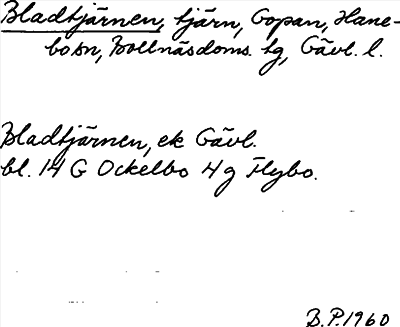 Bladtjärnen, tjärn, Gopan, Hane-
bo sn, Bollnäsdoms. tg, Gävl. l.
Bladtjärnen, ek Gävl.
bl. 14 G Ockelbo 4 g Flybo.
B.P. 1960